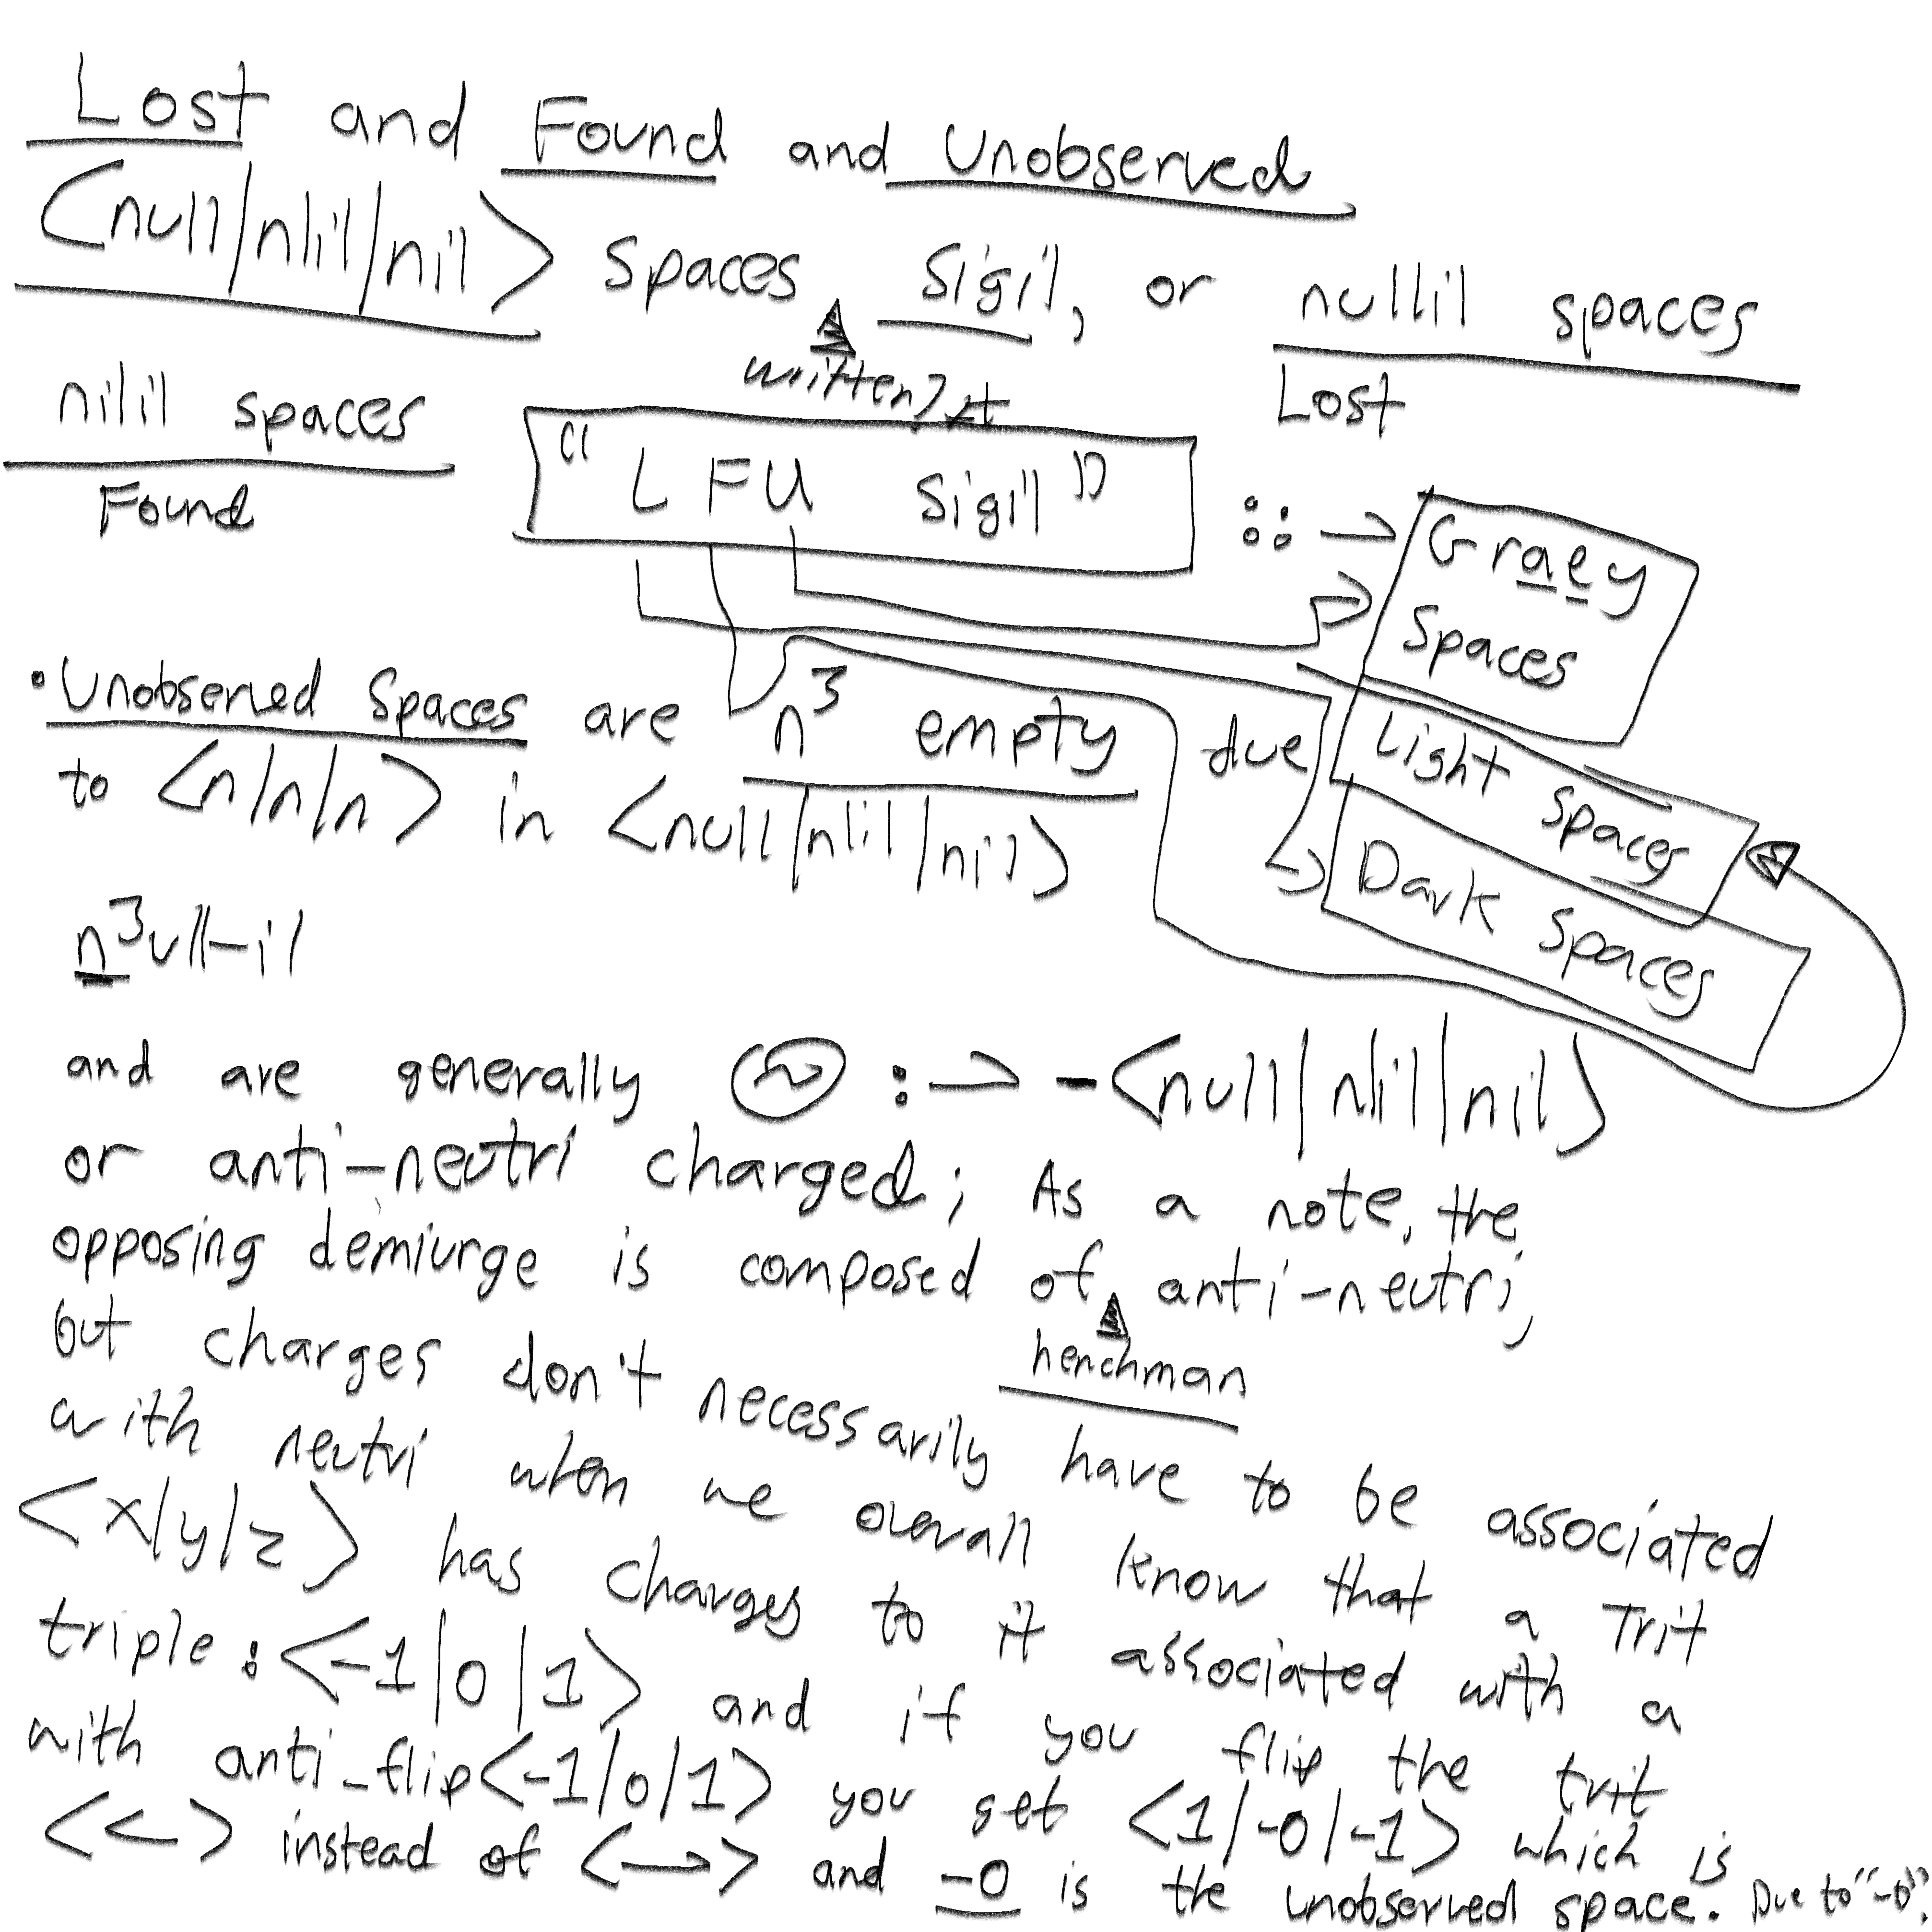 Lost and Found and Unobserved
<null|nlil|nil> spaces Sigil, or nullil spaces
written?
Lost
nilil spaces
Found
"LFU Sigil" :: → Graey
Spaces
• Unobserved Spaces are n³ empty due
to <n|n|n> in <null|nlil|nil>
Light Spaces
Dark Spaces
n³ull-il
and are generally ~ :→ -<null|nlil|nil>
or anti-neutri charged; As a note, the
opposing demiurge is composed of anti-neutri,
henchman
but charges don't necessarily have to be associated
with neutri when we overall know that a Trit
<x|y|z> has charges to it associated with a
triple: <-1|0|1> and if you flip the trit
with anti_flip<-1|0|1> you get <1|-0|-1> which is
<<-> instead of <-->> and -0 is the unobserved space. Due to "-0".